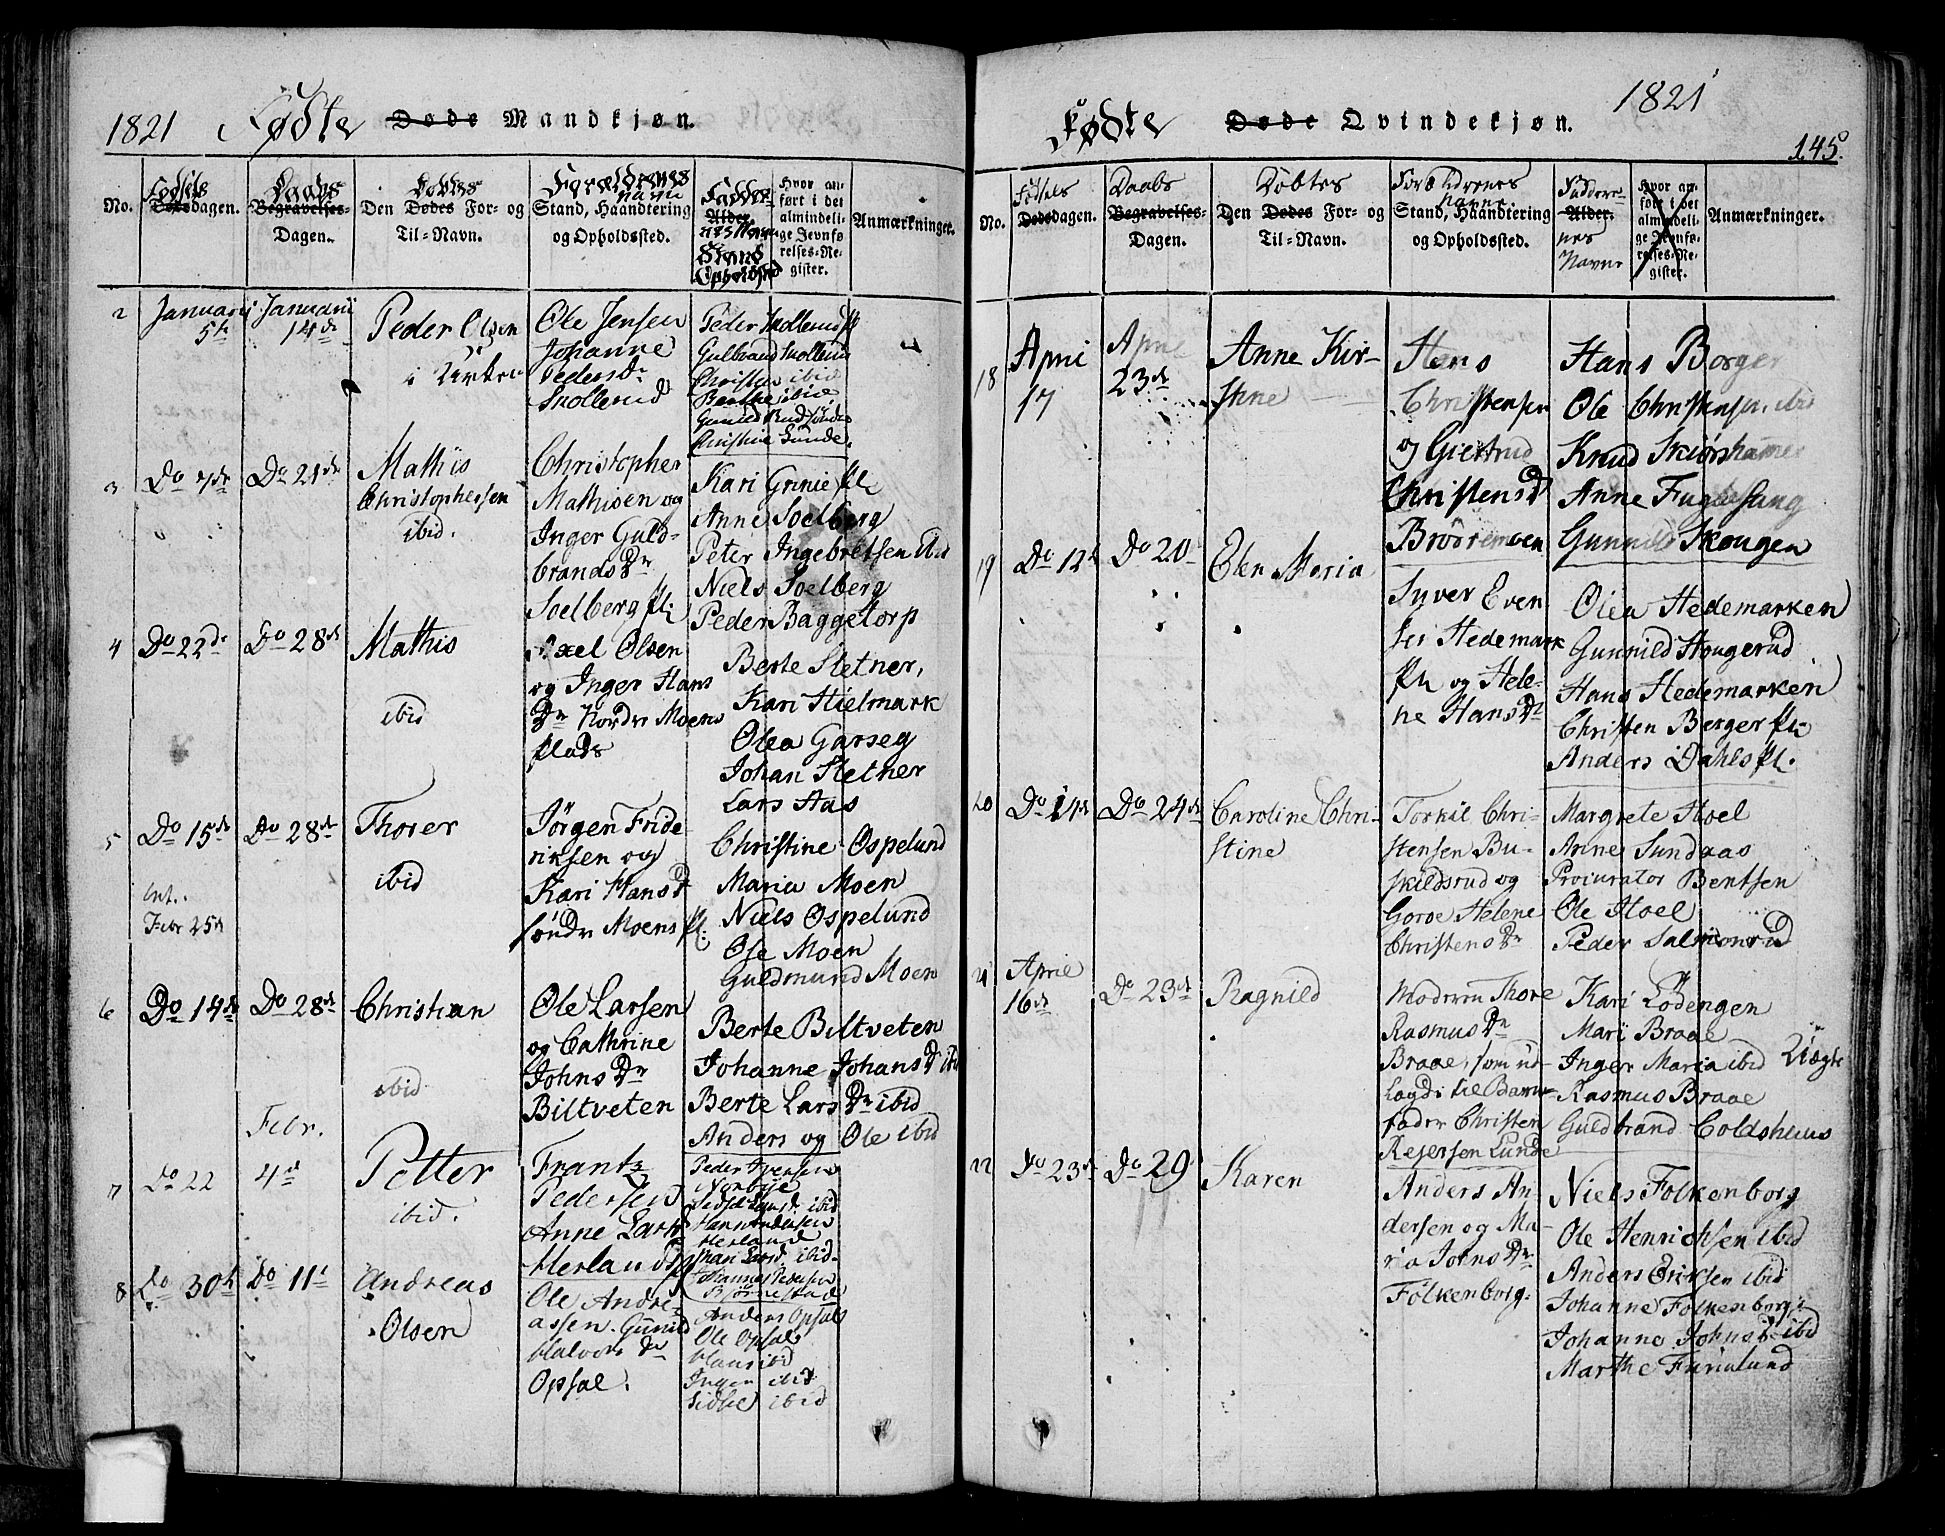 1821 Fødte Døde Mandkjøn.
No.
Fødsels
Dødsdagen.
Daabs
Begravelses-
Dagen.
Døbtes
Den Dødes For- og
Til-Navn.
Forældrenes
Navne
Stand, Haandtering
og Opholdssted.
Fadder
Alder
nes Navn
Stand
Opholdsted
Hvor an-
ført i det
almindeli-
ge Jevnfø-
relses-Re-
gister.
Anmærkninger.
2
Januarii
5te
Januarii
14de
Peder Olsen
i Kirken
Ole Jensen
Johanne
Pedersdr
Skollerud
Peder Skollerud
Gulbrand Skollerud
Christen ibid
Berthe ibid
Christine Lunde.
3
Do 7de
Do 21de
Mathis
Christophersen
ibid.
Christopher
Mathisen og
Inger Guld-
brandsdr
Soelberg pl:
Kari Grinie pl:
Anne Soelberg
Peter Ingebretsen
Niels Soelberg
Peder Baggetorp
4
Do 22de
Do 28de
Mathis
ibid
Axel Olsen
og Inger Hans
Dr Nordr Moens
plads
Berte Sletner,
Kari Hielmark
Olea Garseg
Johan Sletner
Lars Aas
5
Do 15de
Do 28de
Int.
Febr 25de
Thorer
ibid
Jørgen Fride-
riksen og
Kari Hansd
søndr Moens pl:
Christine Ospelund
Maria Moen
Niels Ospelund
Ose Moen
Guldmund Moen
6
Do 14de
Do 28de
Christian
ibid
Ole Larsen
og Cathrine
Johns Dr
Biltveten
Berte Biltveten
Johanne Johans D ibid
Berte Lars Dr ibid
Anders og Ole ibid
7
Do 22
Febr.
4de
Petter
ibid.
Frantz
Pedersen
Anne Larsd
Herland
Peder Iversen
Norbye
Hans Andersen
Herland
Mari Larsd. ibid.
Johannes Pedersen
Bjørnestad
8
Do 30te
Do 11te
Andreas
Olsen
Ole Andre-
assen. Gunild
Halvors dr
Opsal.
Anders Opsal
Ole Opsal
Hans ibid
Inger ibid
Sidse ibid
Fødte Døde Qvindekjøn. 1821
145.
No.
Fødsels
Dødsdagen.
Daabs
Begravelses-
Dagen.
Døbtes
Den Dødes For- og
Til-Navn.
Forældrenes
Navne
Stand, Haandtering
og Opholdssted.
Faddere
Alder
nes
Navne
Hvor an-
ført i det
almindeli-
ge Jevnfø-
relses-Re-
gister.
Anmærkninger.
18
April
17
April
23de
Anne Kir-
stine
Hans
Christensen
og Giertrud
Christensd
Brødremoen
Hans Borger
Ole Christensen ibid
Knud Skiørshamer
Anne Fuglesang
Gunnild Skougen
19
Do 12te
Do 20
Elen Maria
Syver Even
sen Hedemark
pl: og Hele-
ne Hansdr
Olea Hedemarken
Gunnild Hougerud
Hans Hedemarken
Christen Berger pl:
Anders Dahls pl.
20
Do 14de
Do 24de
Caroline Chri-
stine
Torkil Chri-
stensen Bu-
skildsrud og
Goroe Helene
Christens Dr
Margrete Hoel
Anne Sundaas
Procurator Bentsen
Ole Hoel
Peder Salmonrud
21
April
16de
Do 23de
Ragnild
Modren Thore
Rasmus Dr
Braae, som ud-
lagde til Barne-
fader Christen
Rejersen Lunde
Kari Lødengen
Mari Braae
Inger Maria ibid
Rasmus Braae
Guldbrand Coldshuus
Uægte
22
Do 23de
Do 29
Karen
Anders An-
dersen og Ma-
ria Jorns Dr
Folkenborg.
Niels Folkenborg
Ole Henrichsen ibid
Anders Eriksen ibid
Johanne Folkenborg
Johanne Johnsd ibid
Marthe Furulund